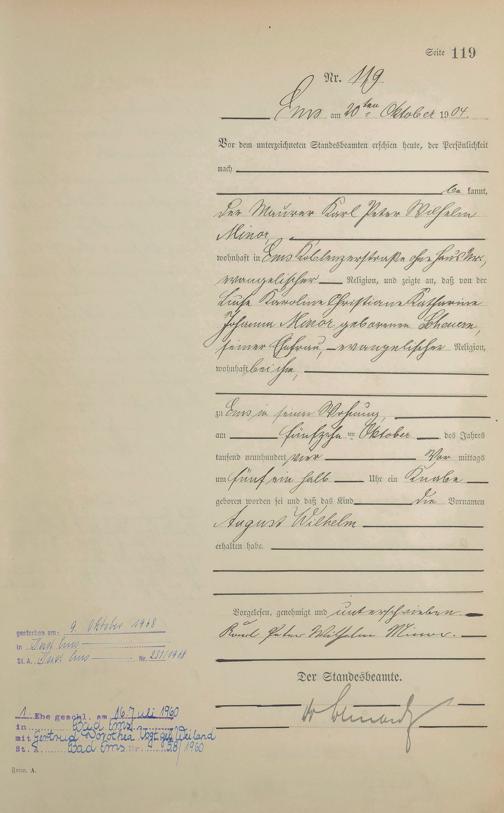 Seite 119
Nr. 119
Ems am 20ten Oktober 1904.
Vor dem unterzeichneten Standesbeamten erschien heute, der Persönlichkeit
nach
be kannt,
der Maurer Karl Peter Wilhelm
Minor
wohnhaft in Ems Koblenzerstraße ohne Haus Nr.,
evangelischer Religion, und zeigte an, daß von der
Luise Karoline Christiane Katharine
Johanna Minor geborenen
seiner Ehefrau, evangelischer Religion,
wohnhaft bei ihm,
zu Ems in seiner Wohnung,
am fünfzehnten Oktober des Jahres
tausend neunhundert vier Vor mittags
um fünf ein halb Uhr ein Knabe
geboren worden sei und daß das Kind die Vornamen
August Wilhelm
erhalten habe.
Vorgelesen, genehmigt und unterschrieben.
Karl Peter Wilhelm Minor.
Der Standesbeamte.
gestorben am: 9. Oktober 1968
in Bad Ems
St.A. Bad Ems Nr.
1. Ehe geschl. am 16. Juli 1960
in Bad Ems
mit Gertrud Dorothea Vogt geb. Weiland
St. A. Bad Ems Nr. 58/1960
Form. A.